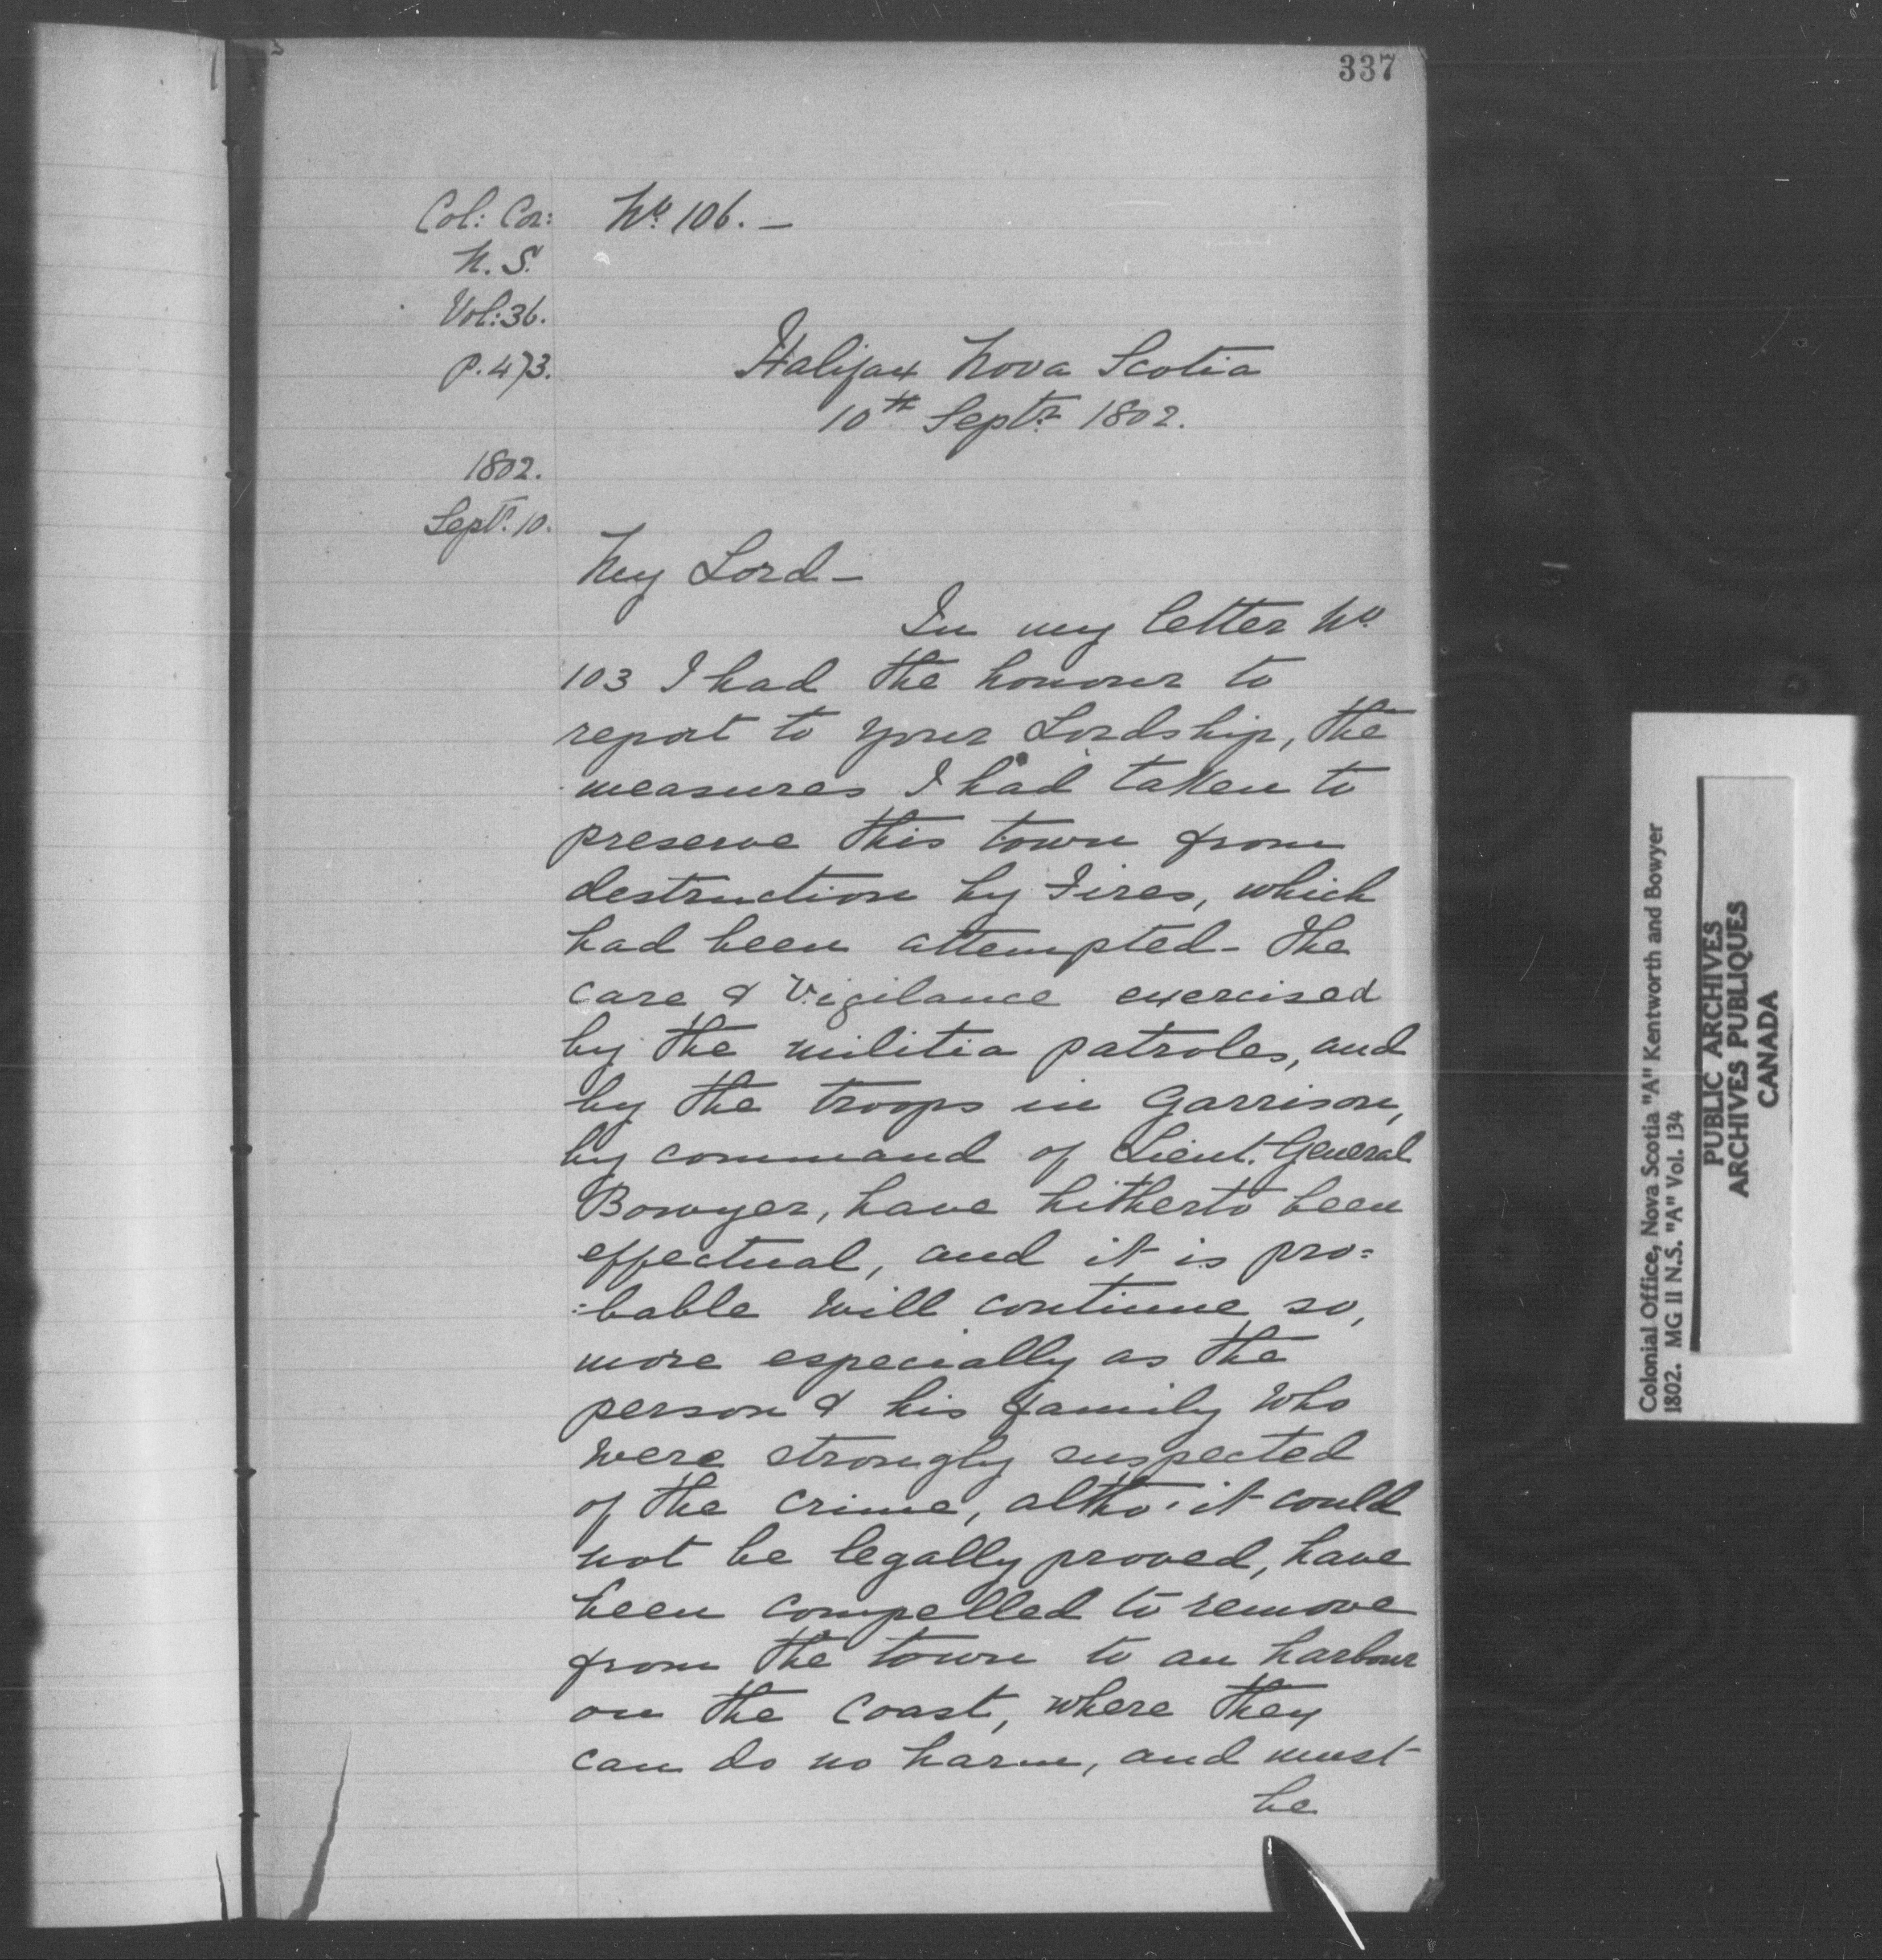 337
Col: Cor:
N. S.
Vol: 36.
P. 473.
1802.
Sept. 10.
No. 106. —
Halifax Nova Scotia
10th Septr. 1802.
My Lord —
In my letter No.
103 I had the honour to
report to your Lordship, the
measures I had taken to
preserve this town from
destruction by Fires, which
had been attempted - The
care & Vigilance exercised
by the militia patroles, and
by the troops in Garrison,
by command of Lieut. General
Bowyer, have hitherto been
effectual, and it is pro=
=bable will continue so,
more especially as the
person & his family who
were strongly suspected
of the crime, altho' it could
not be legally proved, have
been compelled to remove
from the town to an harbour
on the Coast, where they
can do no harm, and must
be
Colonial Office, Nova Scotia "A" Kentworth and Bowyer
1802. MG 11 N.S. "A" Vol. 134
PUBLIC ARCHIVES
ARCHIVES PUBLIQUES
CANADA